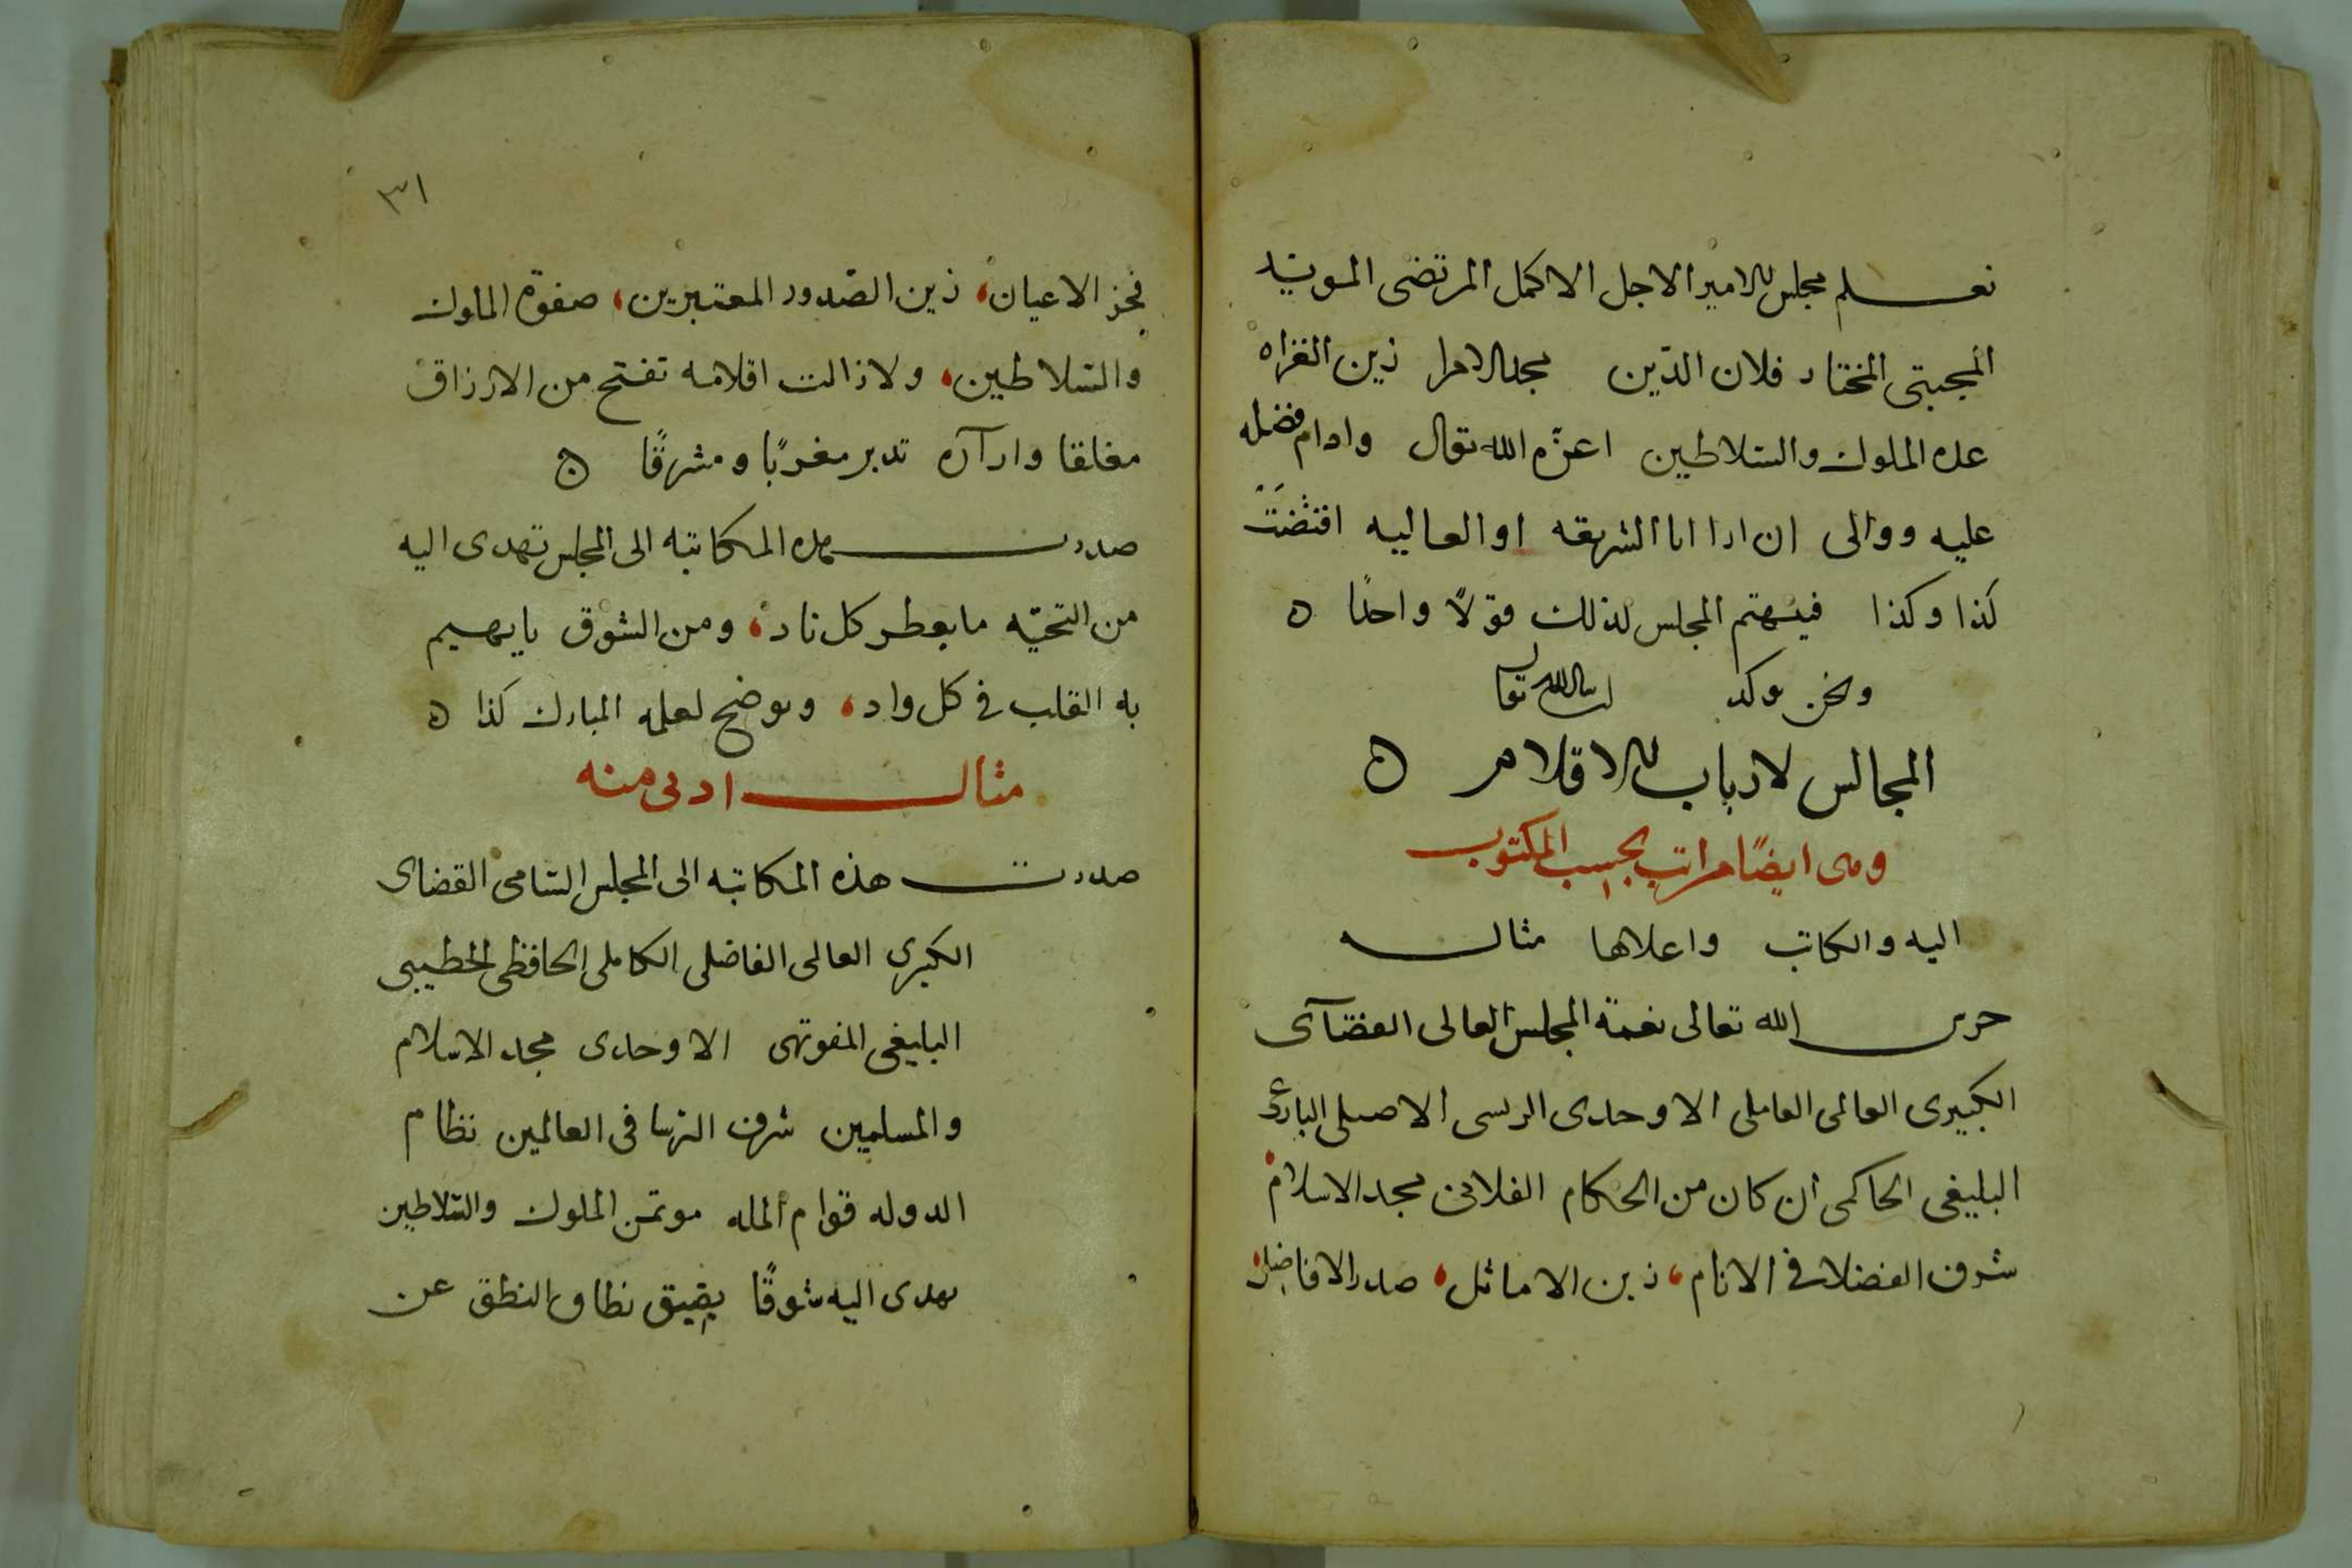 نعلم مجلس الامير الاجل الاكمل المرتضى المويد
المجبتى المختار فلان الدّين مجد الامرا زين الغزاه
عده الملوك والسّلاطين اعزّه الله تعالى وادام فضله
عليه ووالى ان ارا انا الشريفه او العاليه اقتضَتْ
كذا وكذا فيهتم المجلس لذلك قولًا واحدًا ه
ونحن نوكد ان شا الله تعالى
المجالس لارباب الاقلام ه
وهى ايضًا مراتب بحسب المكتوب
اليه والكاتب واعلاها مثال
حرس الله تعالى نعمة المجلس العالى القضآى
الكبيرى العالمى العاملى الاوحدى الريسى الاصيلى البارعى
البليغى الحاكمى ان كان من الحكام الفلانى مجد الاسلام
شرف الفضلا فى الانام، زين الاماثل، صدر الافاضل،
٣١
فخر الاعيان، زين الصّدور المعتبرين، صفوة الملوك
والسّلاطين، ولا زالت اقلامه تفتح من الارزاق
مغلقا وارآره تدبر مغربًا ومشرقًا ه
صدرت هذه المكاتبه الى المجلس تهدى اليه
من التحيّه ما يعطر كل ناد، ومن الشوق ما يهيم
به القلب فى كل واد، وتوضح لعلمه المبارك كذا ه
مثال ادنى منه
صدرت هذه المكاتبه الى المجلس السّامى القضاى
الكبيرى العالمى الفاضلى الكاملى الحافظى الخطيبى
البليغى المفوّهى الاوحدى مجد الاسلام
والمسلمين شرف الروسا فى العالمين نظام
الدوله قوام المله موتمن الملوك والسّلاطين
يهدى اليه شوقًا يضيق نطاق النطق عن